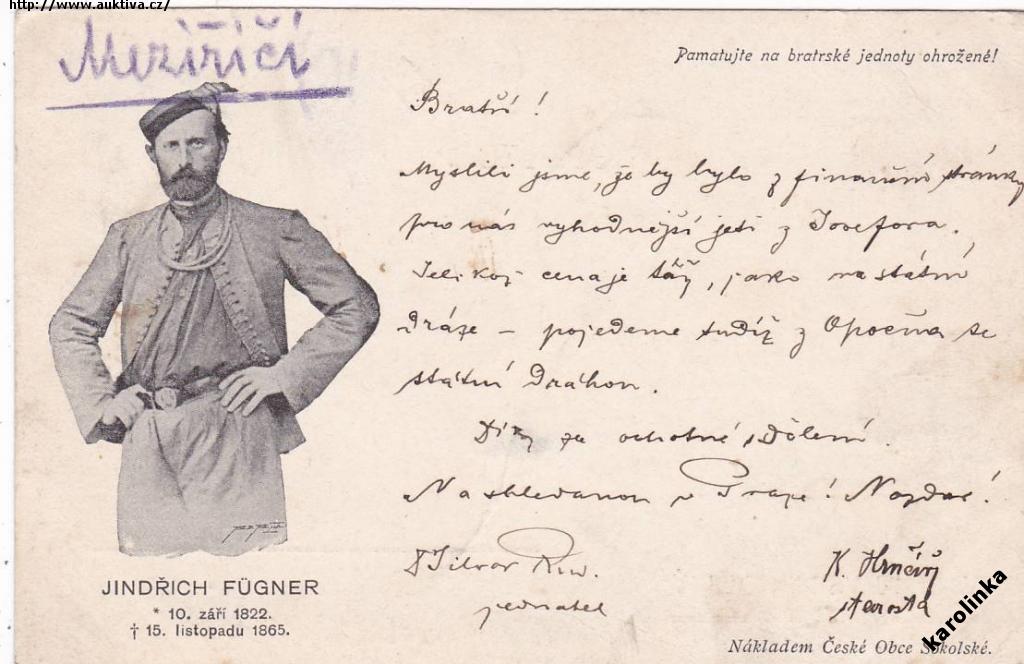 http://www.auktiva.cz/
Meziříčí
Pamatujte na bratrské jednoty ohrožené!
Bratři!
Mysleli jsme, že by bylo z finanční stránky
pro nás výhodnější jeti z Josefova.
Jelikož cena je táž, jako na státní
dráze – pojedeme tudíž z Opočna se
státní dráhou.
Díky za ochotné sdělení.
Na shledanou v Praze! Nazdar!
K. Hrnčíř
jednatel
starosta
JINDŘICH FÜGNER
* 10. září 1822.
† 15. listopadu 1865.
Nákladem České Obce Sokolské.
karolinka